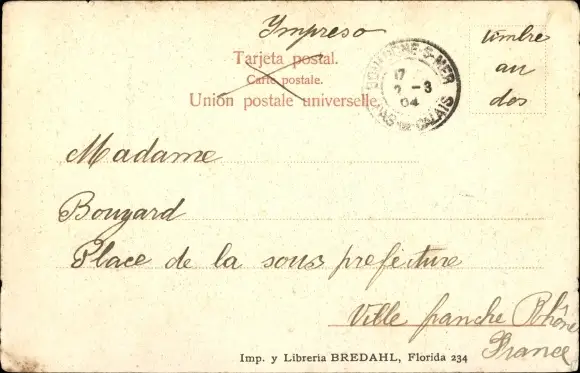 Impreso
Tarjeta postal.
Carte postale.
Unión postale universelle.
BOULOGNE-S-MER
17
2 -3
04
PAS DE CALAIS
timbre
au
dos
Madame
Bouzard
Place de la sous prefeture
Ville franche Rhône
France
Imp. y Libreria BREDAHL, Florida 234